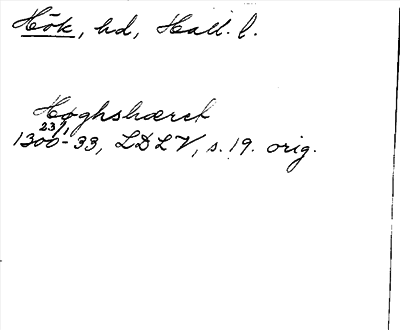 Hök, hd, Hall. l.
Høghshæret
23/1
1300-33, LDLV, s. 19. orig.